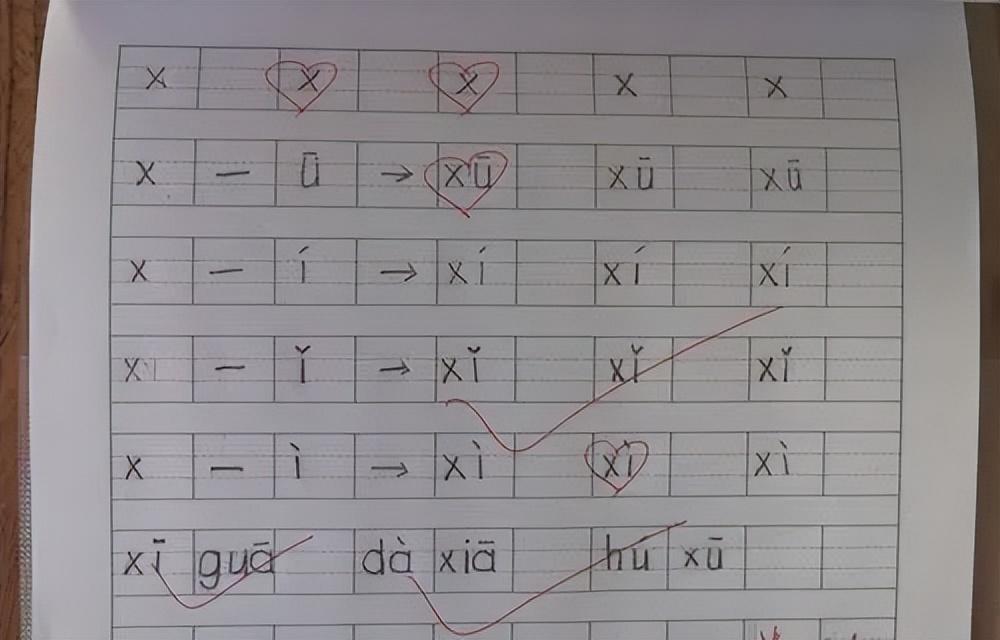 x x x x x
x — ū → xū xū xū
x — í → xí xí xí
x — ǐ → xǐ xǐ xǐ
x — ì → xì xì xì
xī guā dà xiā hu xū